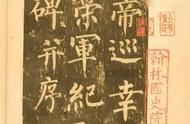 帝巡幸
荣軍紀
碑并序
翰林國史院